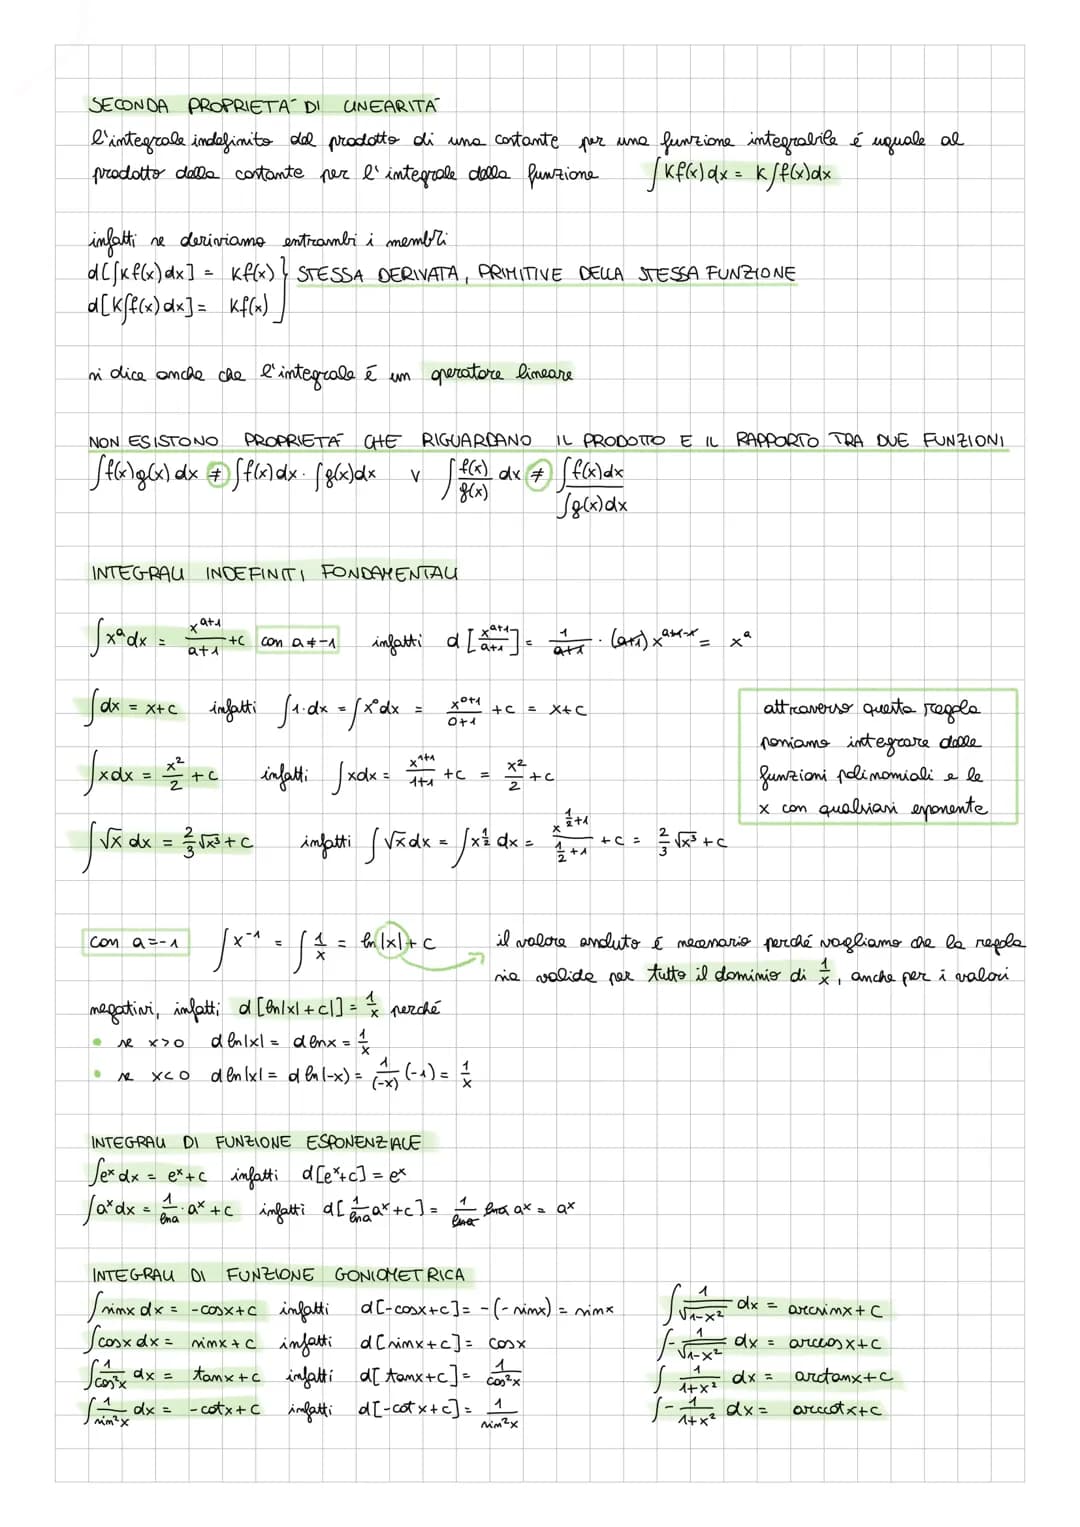 SECONDA PROPRIETA' DI LINEARITA'
l'integrale indefinito del prodotto di una costante per una funzione integrabile é uguale al
prodotto della costante per l'integrale della funzione ∫Kf(x)dx = K∫f(x)dx
infatti se deriviamo entrambi i membri
d[∫Kf(x)dx] = Kf(x) } STESSA DERIVATA, PRIMITIVE DELLA STESSA FUNZIONE
d[K∫f(x)dx] = Kf(x)
si dice anche che l'integrale é un operatore lineare
NON ESISTONO PROPRIETA' CHE RIGUARDANO IL PRODOTTO E IL RAPPORTO TRA DUE FUNZIONI
∫f(x)g(x)dx ≠ ∫f(x)dx · ∫g(x)dx v ∫ f(x)/g(x) dx ≠ ∫f(x)dx / ∫g(x)dx
INTEGRALI INDEFINITI FONDAMENTALI
∫xᵃdx = xᵃ⁺¹/a+1 +c con a≠-1 infatti d[xᵃ⁺¹/a+1] = 1/a+1 · (a+1)xᵃ⁺¹⁻¹ = xᵃ
∫dx = x+c infatti ∫1·dx = ∫x⁰dx = x⁰⁺¹/0+1 +c = x+c
∫xdx = x²/2 +c infatti ∫xdx = x¹⁺¹/1+1 +c = x²/2 +c
∫√x dx = 2/3 √x³+c infatti ∫√xdx = ∫x^1/2 dx = x^(1/2+1) / 1/2+1 +c = 2/3 √x³+c
attraverso questa regola
possiamo integrare delle
funzioni polinomiali e le
x con qualsiasi esponente
con a=-1 ∫x⁻¹ = ∫ 1/x = ln|x|+c il valore assoluto é necessario perché vogliamo che la regola
sia valida per tutto il dominio di 1/x, anche per i valori
negativi, infatti d[ln|x|+c|] = 1/x perché
• se x>0 d ln|x| = d lnx = 1/x
• se x<0 d ln|x| = d ln(-x) = 1/(-x) (-1) = 1/x
INTEGRALI DI FUNZIONE ESPONENZIALE
∫eˣdx = eˣ+c infatti d[eˣ+c] = eˣ
∫aˣdx = 1/lna · aˣ+c infatti d[1/lna aˣ+c] = 1/lna lna aˣ = aˣ
INTEGRALI DI FUNZIONE GONIOMETRICA
∫sinx dx = -cosx+c infatti d[-cosx+c] = -(-sinx) = sinx
∫cosx dx = sinx+c infatti d[sinx+c] = cosx
∫ 1/cos²x dx = tanx+c infatti d[tanx+c] = 1/cos²x
∫ 1/sin²x dx = -cotx+c infatti d[-cotx+c] = 1/sin²x
∫ 1/√1-x² dx = arcsinx+c
∫ - 1/√1-x² dx = arccosx+c
∫ 1/1+x² dx = arctanx+c
∫ - 1/1+x² dx = arccotx+c